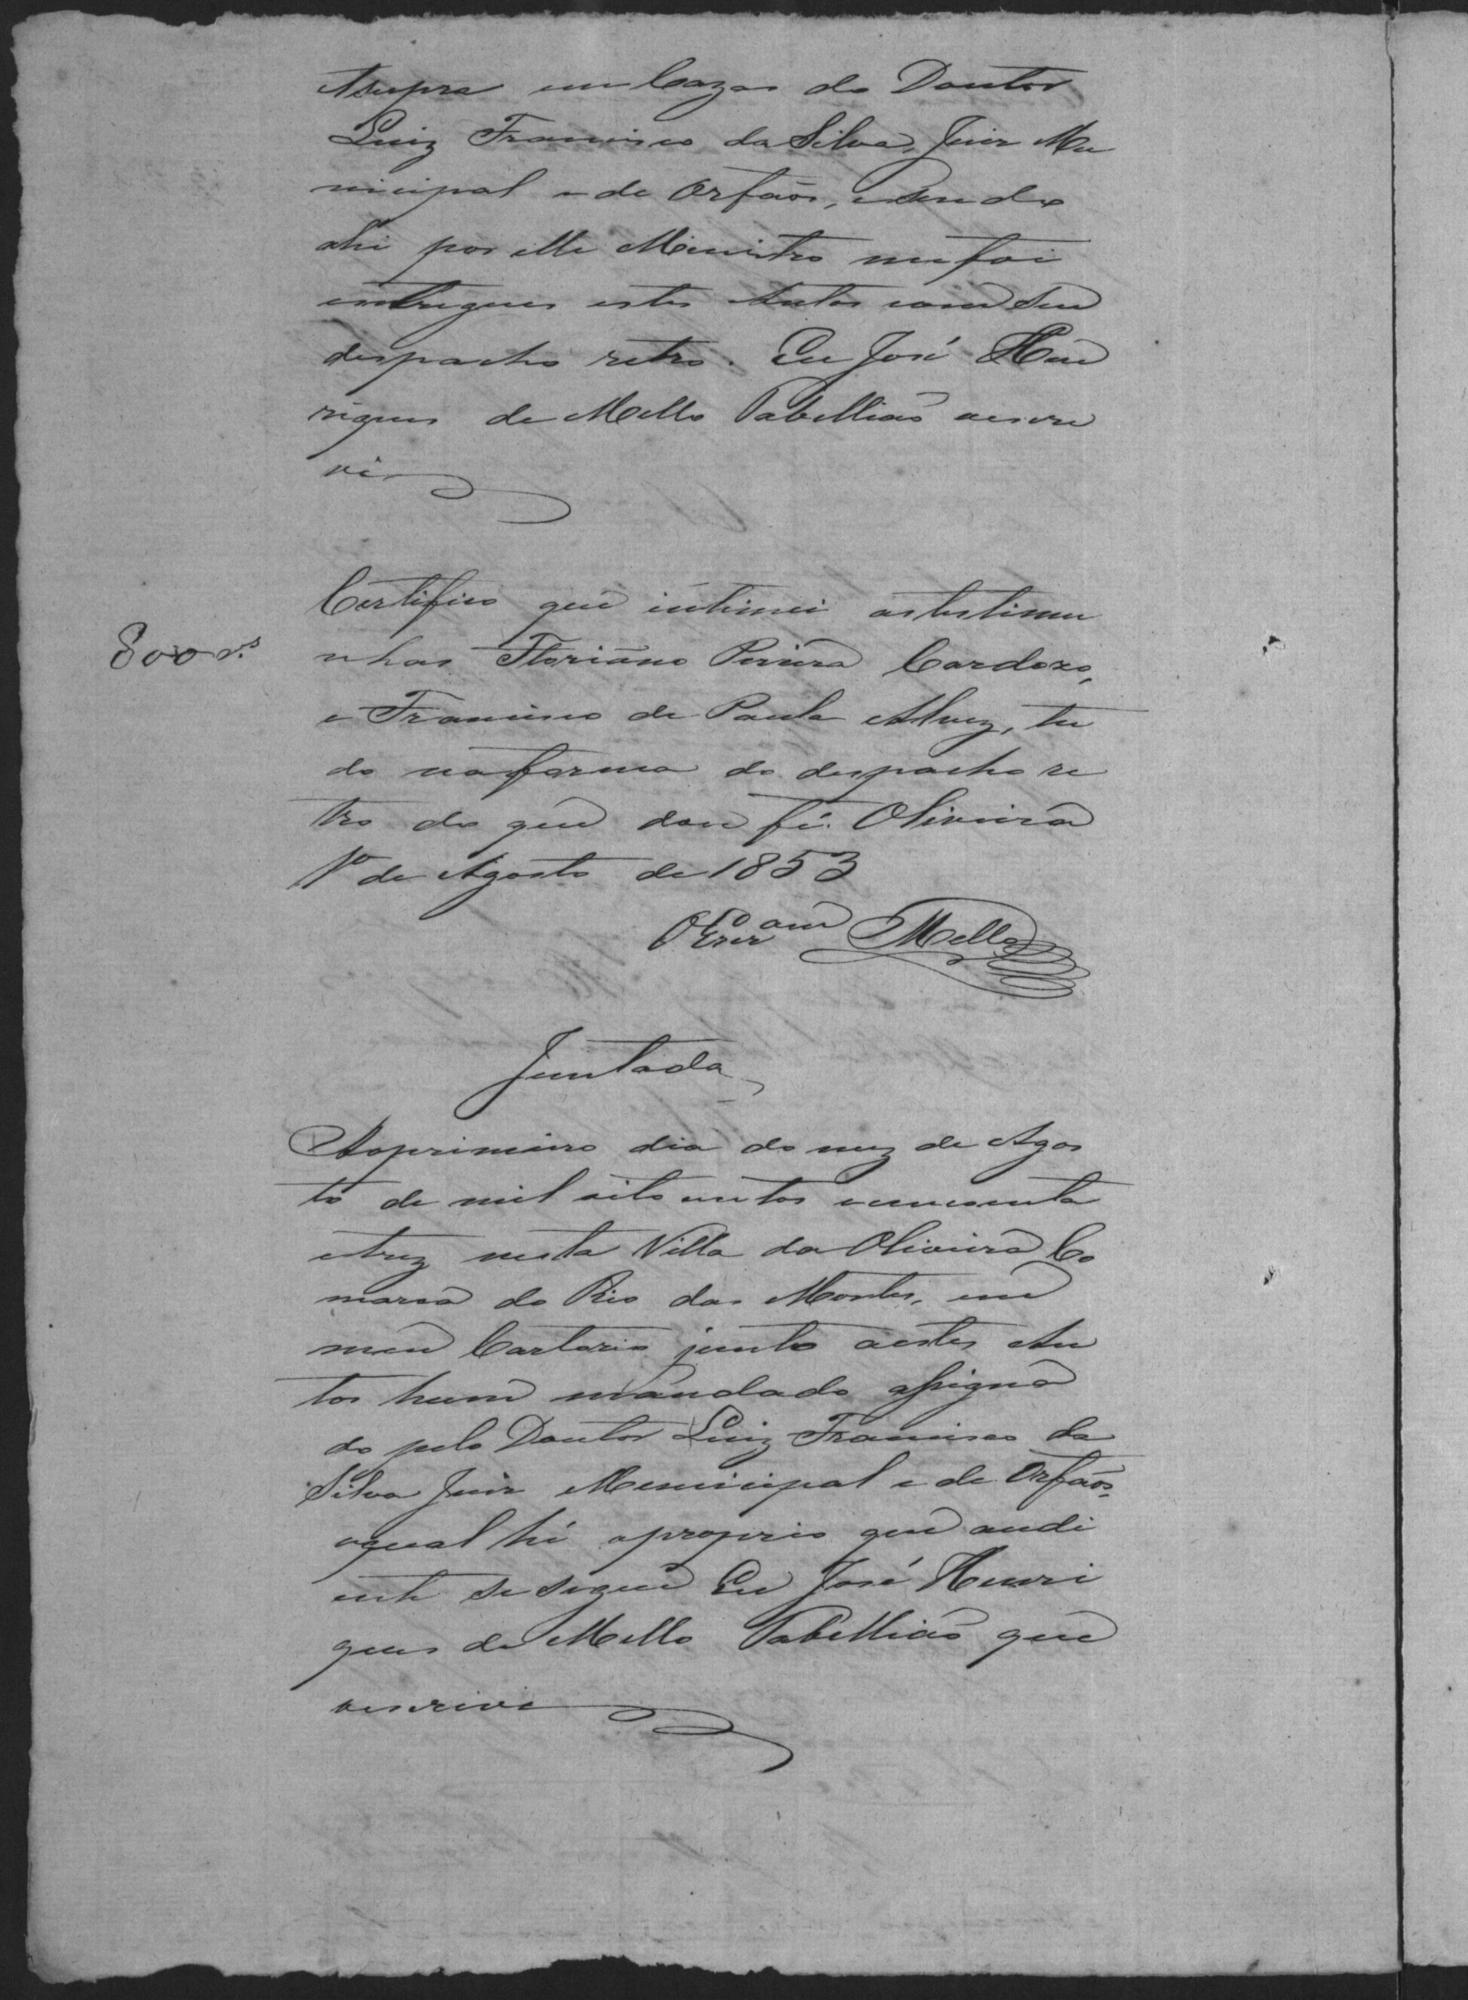 supra em Cazas do Doutor
Luiz Francisco da Silva, Juiz Mu
nicipal e de Orfaõs, e sendo
ahi por elle Ministro me foi
entregues estes Autos com seu
despacho retro. Eu José Hen
riques de Mello Tabelliaõ escre
vi
Certifico que intimei as testimu
nhas Floriano Pereira Cardozo,
e Francisco de Paula Alvez, tu
do na forma do despacho re
tro do que dou fé. Oliveira
1º de Agosto de 1853
O Escr.am Mello
800 rs
Juntada
Ao primeiro dia do mez de Agos
to de mil oito centos cincoenta
e trez nesta Villa da Oliveira Co
marca do Rio das Mortes, em
meu Cartorio junto a estes Au
tos hum mandado assigna
do pelo Doutor Luiz Francisco da
Silva Juiz Municipal e de Orfaõs,
o qual hé o proprio que a di
ente se segue Eu José Henri
ques de Mello Tabelliaõ que
o escrivi